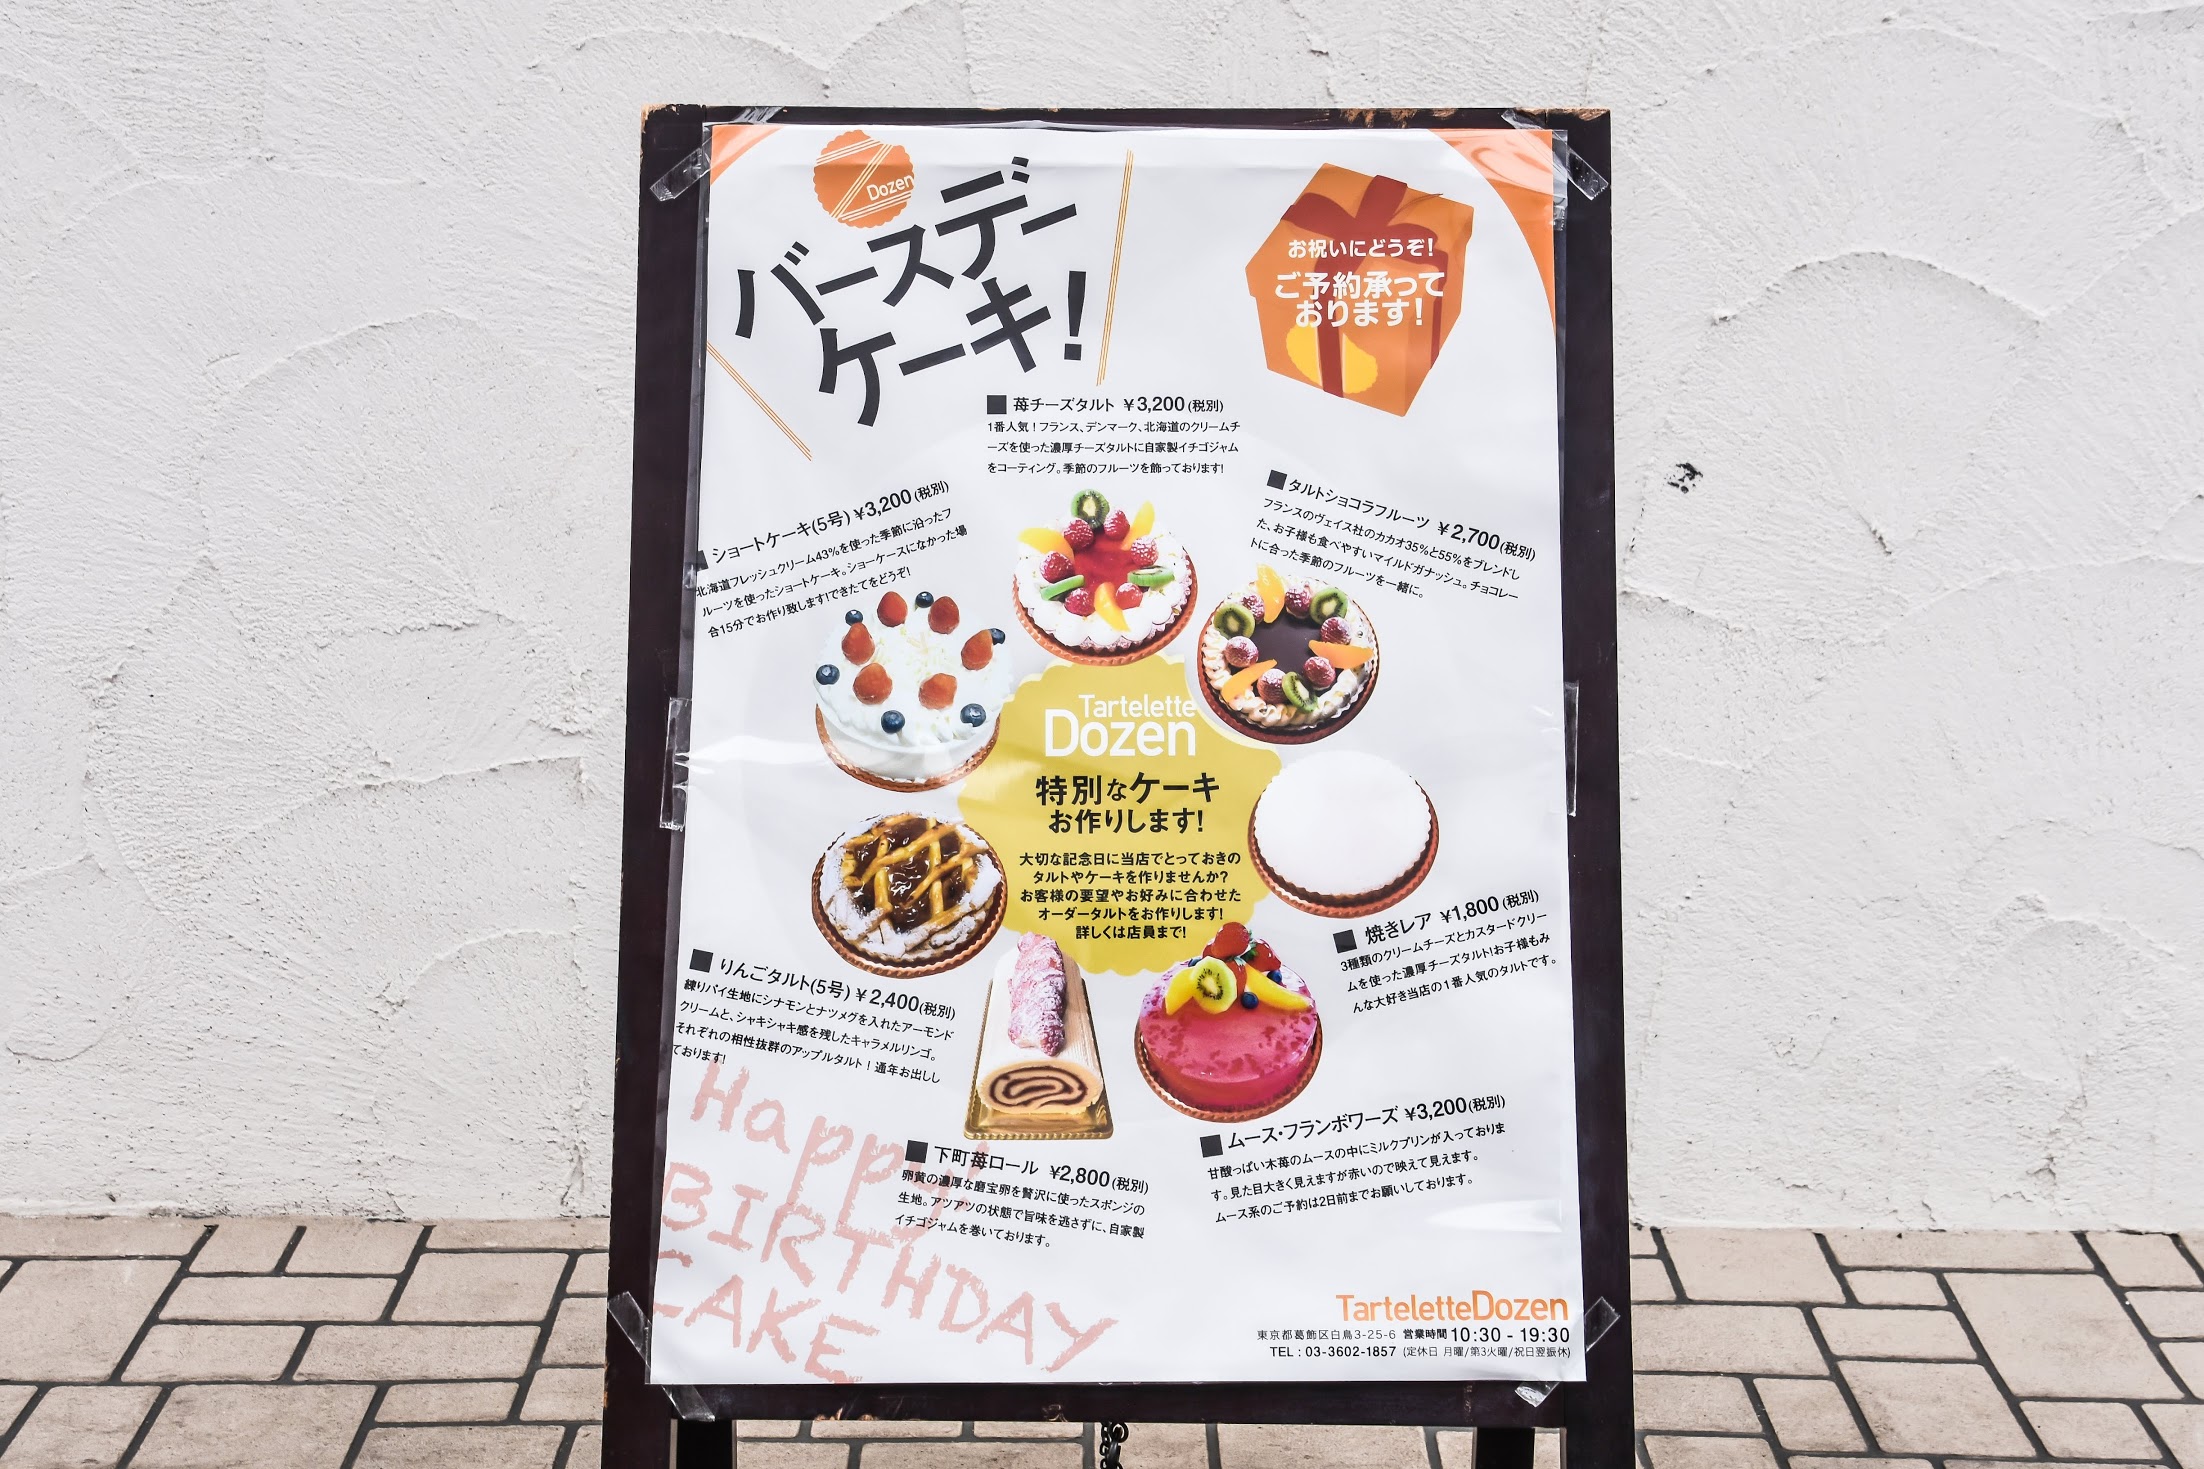 Dozen
バースデー
ケーキ!
お祝いにどうぞ!
ご予約承って
おります!
■ 苺チーズタルト ¥3,200(税別)
1番人気!フランス、デンマーク、北海道のクリームチ
ーズを使った濃厚チーズタルトに自家製イチゴジャム
をコーティング。季節のフルーツを飾っております!
■ ショートケーキ(5号) ¥3,200(税別)
北海道フレッシュクリーム43%を使った季節に沿ったフ
ルーツを使ったショートケーキ。ショーケースになかった場
合15分でお作り致します!できたてをどうぞ!
■ タルトショコラフルーツ ¥2,700(税別)
フランスのヴェイス社のカカオ35%と55%をブレンドし
た、お子様も食べやすいマイルドガナッシュ。チョコレー
トに合った季節のフルーツを一緒に。
Tartelette
Dozen
特別なケーキ
お作りします!
大切な記念日に当店でとっておきの
タルトやケーキを作りませんか?
お客様の要望やお好みに合わせた
オーダータルトをお作りします!
詳しくは店員まで!
■ 焼きレア ¥1,800(税別)
3種類のクリームチーズとカスタードクリー
ムを使った濃厚チーズタルト!お子様もみ
んな大好き当店の1番人気のタルトです。
■ りんごタルト(5号) ¥2,400(税別)
練りパイ生地にシナモンとナツメグを入れたアーモンド
クリームと、シャキシャキ感を残したキャラメルリンゴ。
それぞれの相性抜群のアップルタルト!通年お出しし
ております!
■ ムース・フランボワーズ ¥3,200(税別)
甘酸っぱい木苺のムースの中にミルクプリンが入っておりま
す。見た目大きく見えますが赤いので映えて見えます。
ムース系のご予約は2日前までお願いしております。
■ 下町苺ロール ¥2,800(税別)
卵黄の濃厚な磨宝卵を贅沢に使ったスポンジの
生地。アツアツの状態で旨味を逃さずに、自家製
イチゴジャムを巻いております。
Happy!
BIRTHDAY
CAKE
TarteletteDozen
東京都葛飾区白鳥3-25-6 営業時間 10:30 - 19:30
TEL : 03-3602-1857 (定休日 月曜/第3火曜/祝日翌振休)